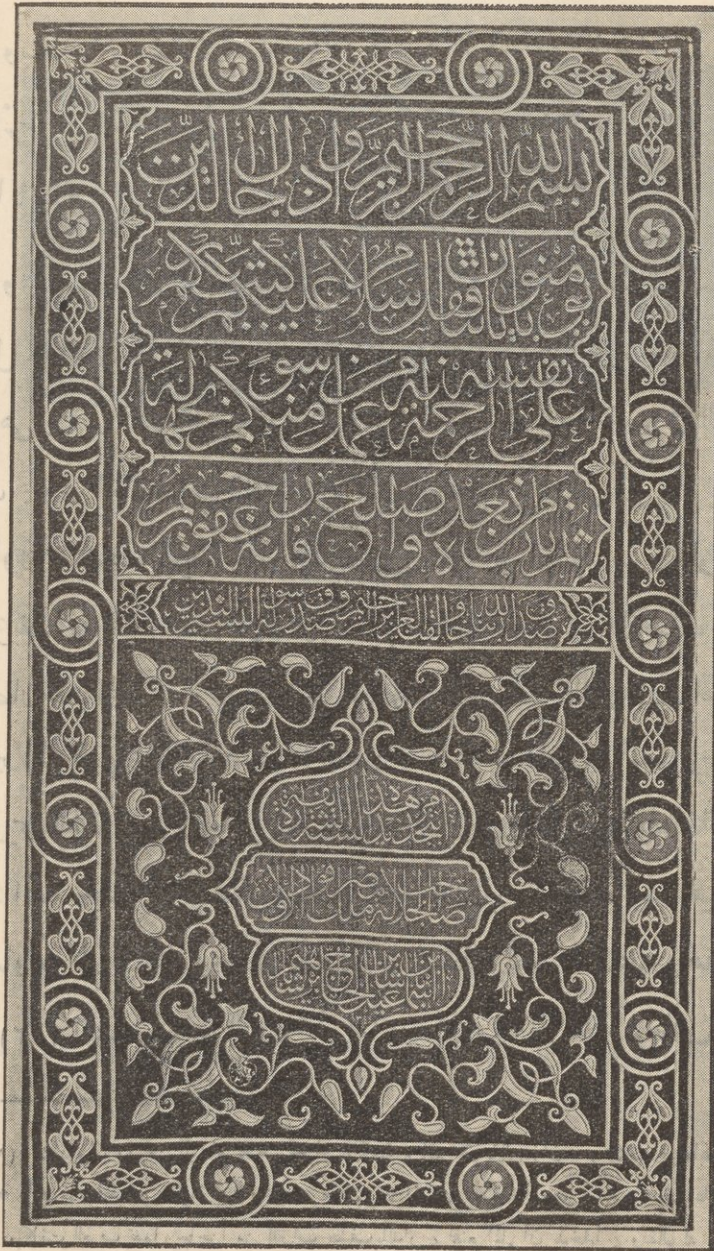 بسم الله الرحمن الرحيم واذا جاءك الذين
يؤمنون بآياتنا فقل سلام عليكم كتب ربكم
على نفسه الرحمة انه من عمل منكم سوءا بجهالة
ثم تاب من بعده واصلح فانه غفور رحيم
صدق الله ربنا وخالقنا العزيز الرحيم وصدق رسوله البشير النذير
امر بتجديد هذه الستارة الشريفة
صاحب الجلالة ملك مصر فؤاد الاول
ابن اسماعيل باشا بن الحاج ابراهيم باشا